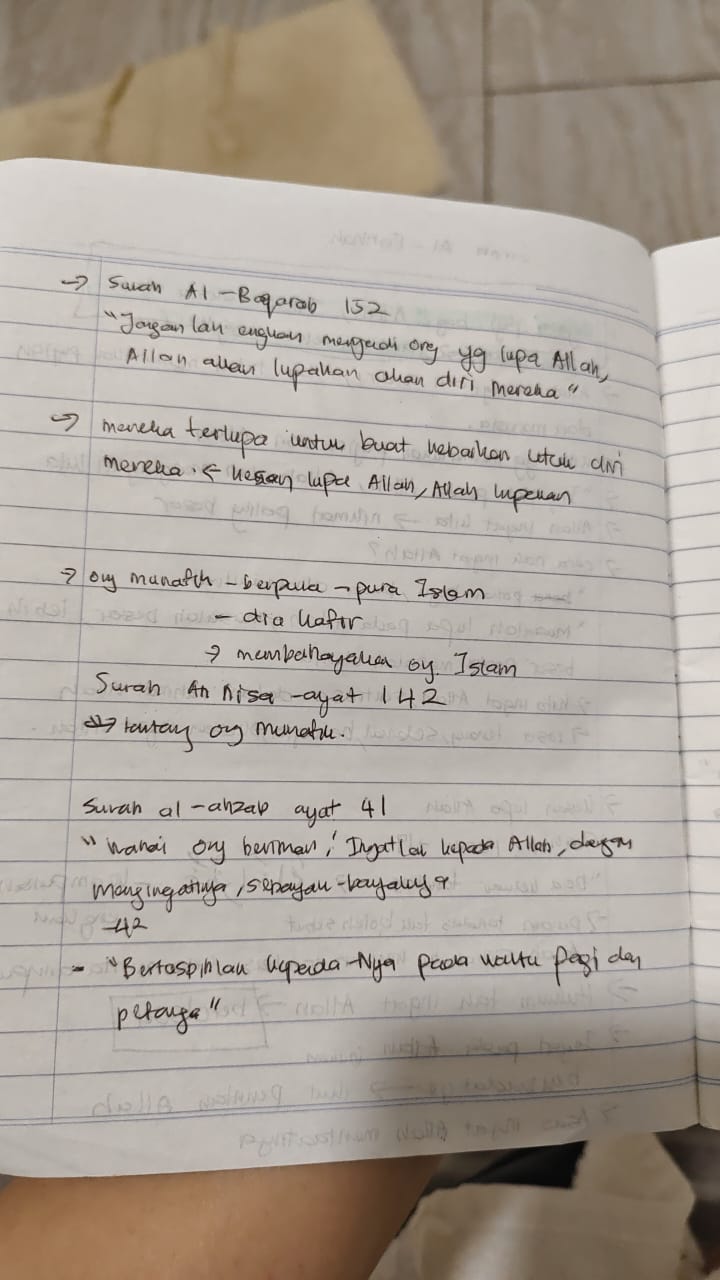 → Surah Al-Baqarah 152
"Jangan lah engkau menjadi org yg lupa Allah,
Allah akan lupakan akan diri mereka"
→ mereka terlupa untuk buat kebaikan utk diri
mereka. ← kesan lupa Allah, Allah lupakan
→ org munafik - berpura-pura Islam
- dia kafir
→ membahayakan og. Islam
Surah An Nisa - ayat 142
→ tentang og munafik.
Surah al-ahzab ayat 41
"Wahai org beriman, Ingatlah kepada Allah, dengan
mengingatinya, sebayak-bayaknya
-42
- "Bertasbihlah kepada-Nya pada waktu pagi dan
petangs"